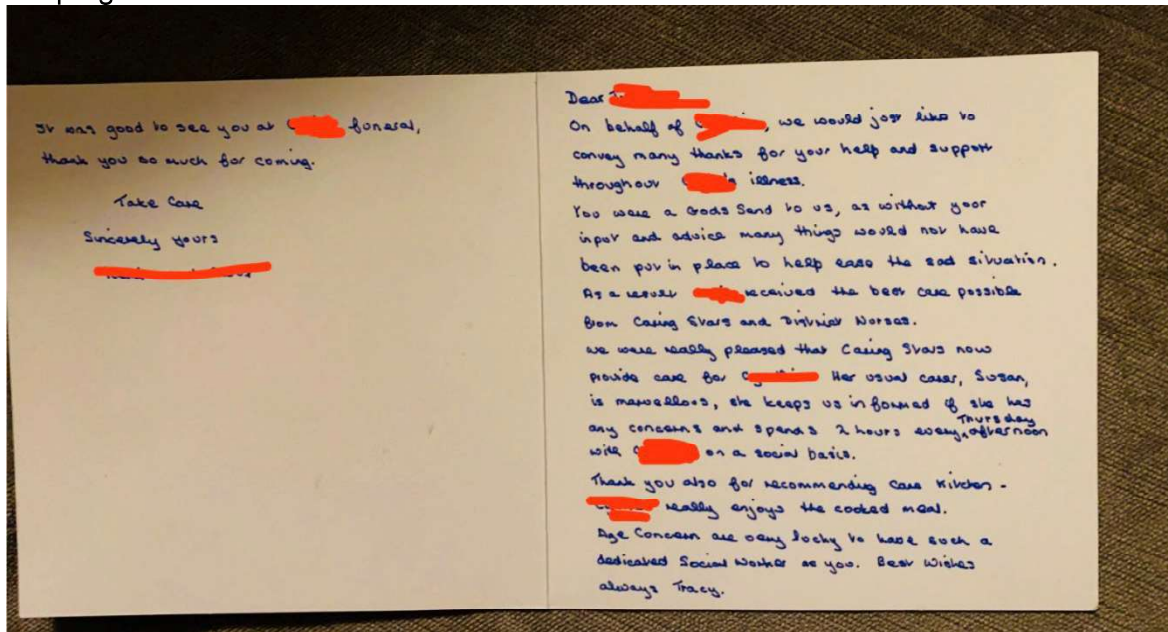 It was good to see you at funeral,
thank you so much for coming.
Take Care
Sincerely yours
Dear
On behalf of , we would just like to
convey many thanks for your help and support
throughout illness.
You were a Gods Send to us, as without your
input and advice many things would not have
been put in place to help ease the sad situation.
As a result received the best care possible
from Caring Stars and District Nurses.
We were really pleased that Caring Stars now
provide care for Her usual carer, Susan,
is marvellous, she keeps us informed if she has
any concerns and spends 2 hours every Thursday afternoon
with on a social basis.
Thank you also for recommending Care Kitchen -
really enjoys the cooked meal.
Age Concern are very lucky to have such a
dedicated Social Worker as you. Best Wishes
always Tracy.